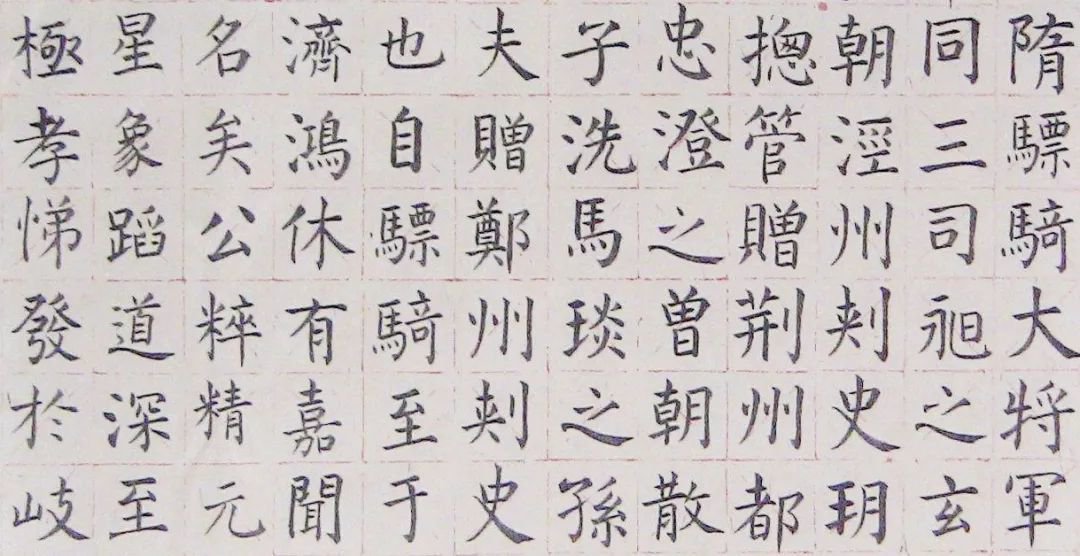 隋驃騎大将軍
同三司昶之玄
朝涇州刾史玥
摠管贈荆州都
忠澄之曽朝散
子洗馬琰之孫
夫贈鄭州刾史
也自驃騎至于
濟鴻休有嘉聞
名矣公粹精元
星象蹈道深至
極孝悌發於岐